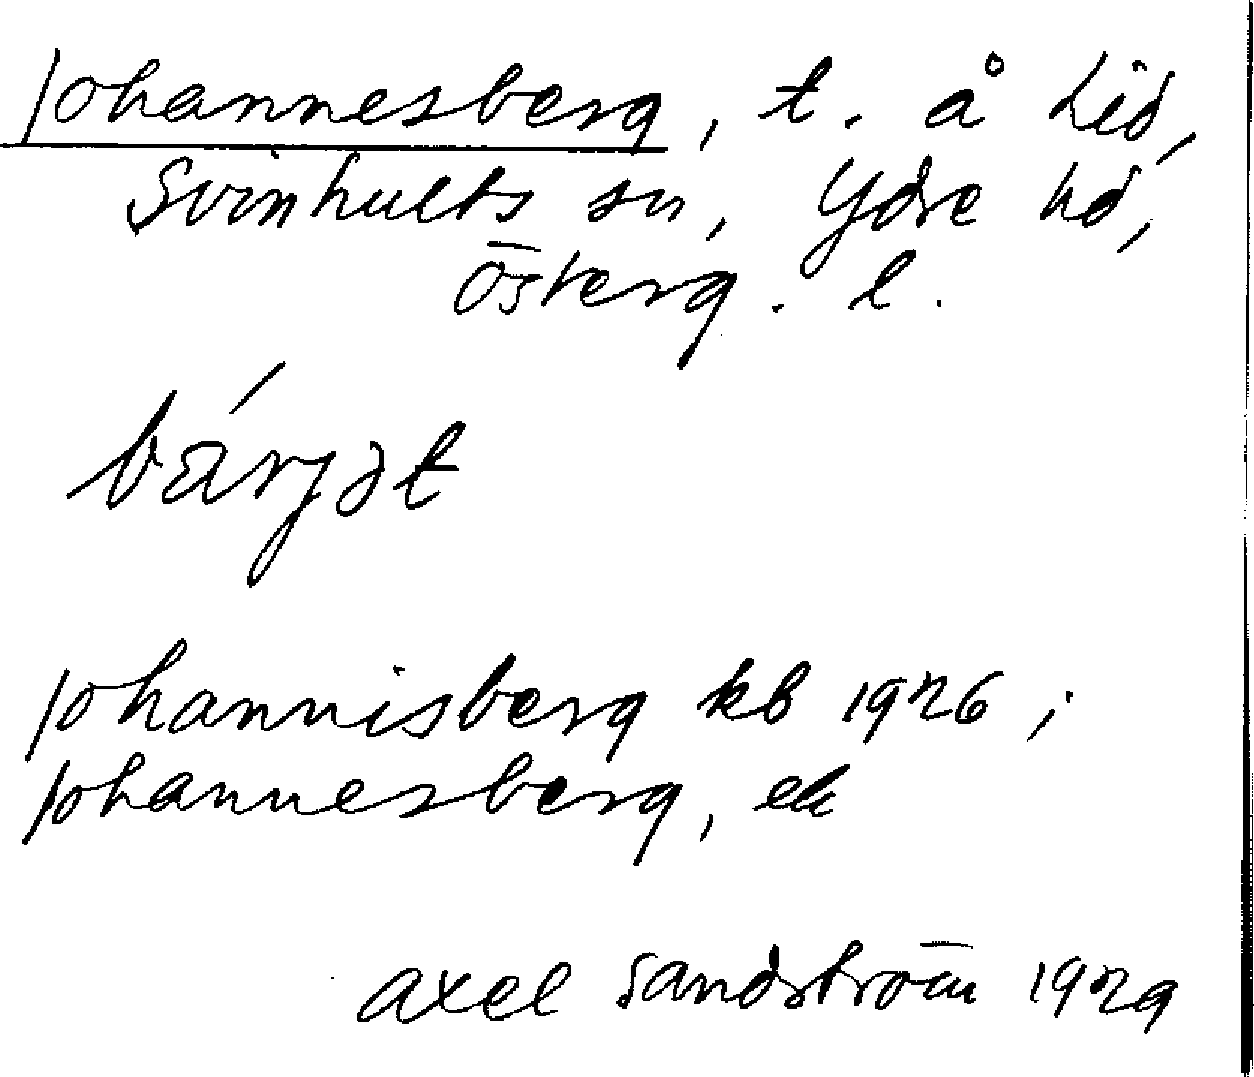 Johannesberg, t. å Lid,
Svinhults sn, Ydre hd,
Österg. l.
bä́rjət
Johannisberg kb 1926;
Johannesberg, ek
Axel Sandström 1929